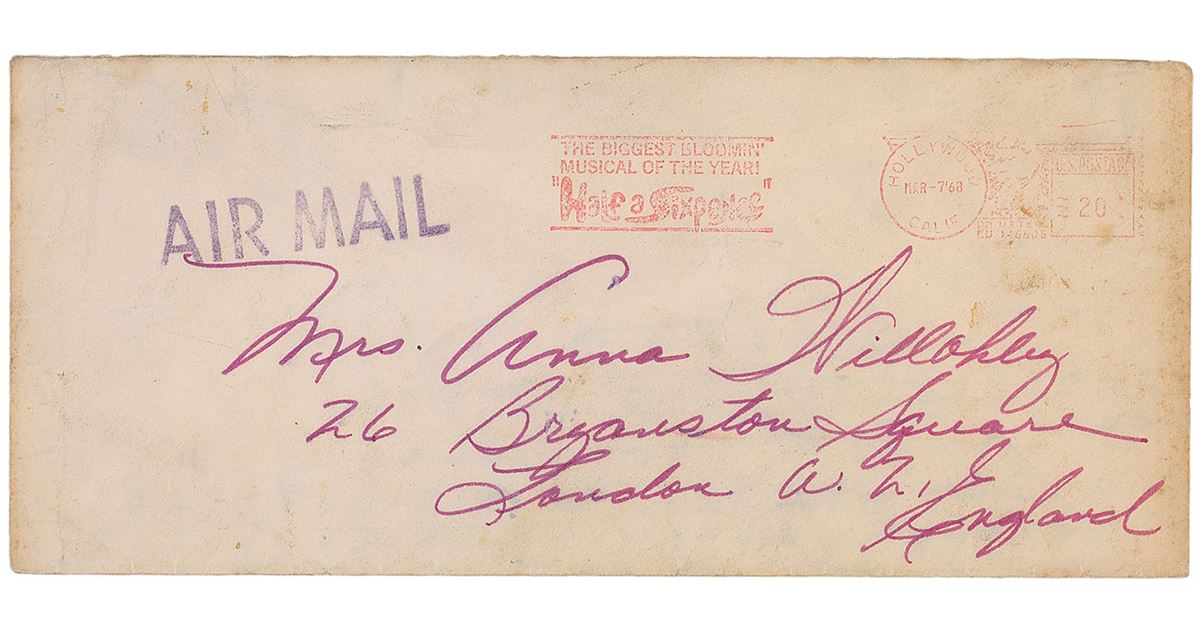 THE BIGGEST BLOOMIN'
MUSICAL OF THE YEAR!
"Half a Sixpence"
HOLLYWOOD
MAR-7'68
CALIF
U.S. POSTAGE
20
P.B. METER
AIR MAIL
Mrs. Anna Willohley
26 Bryanston Square
London
England